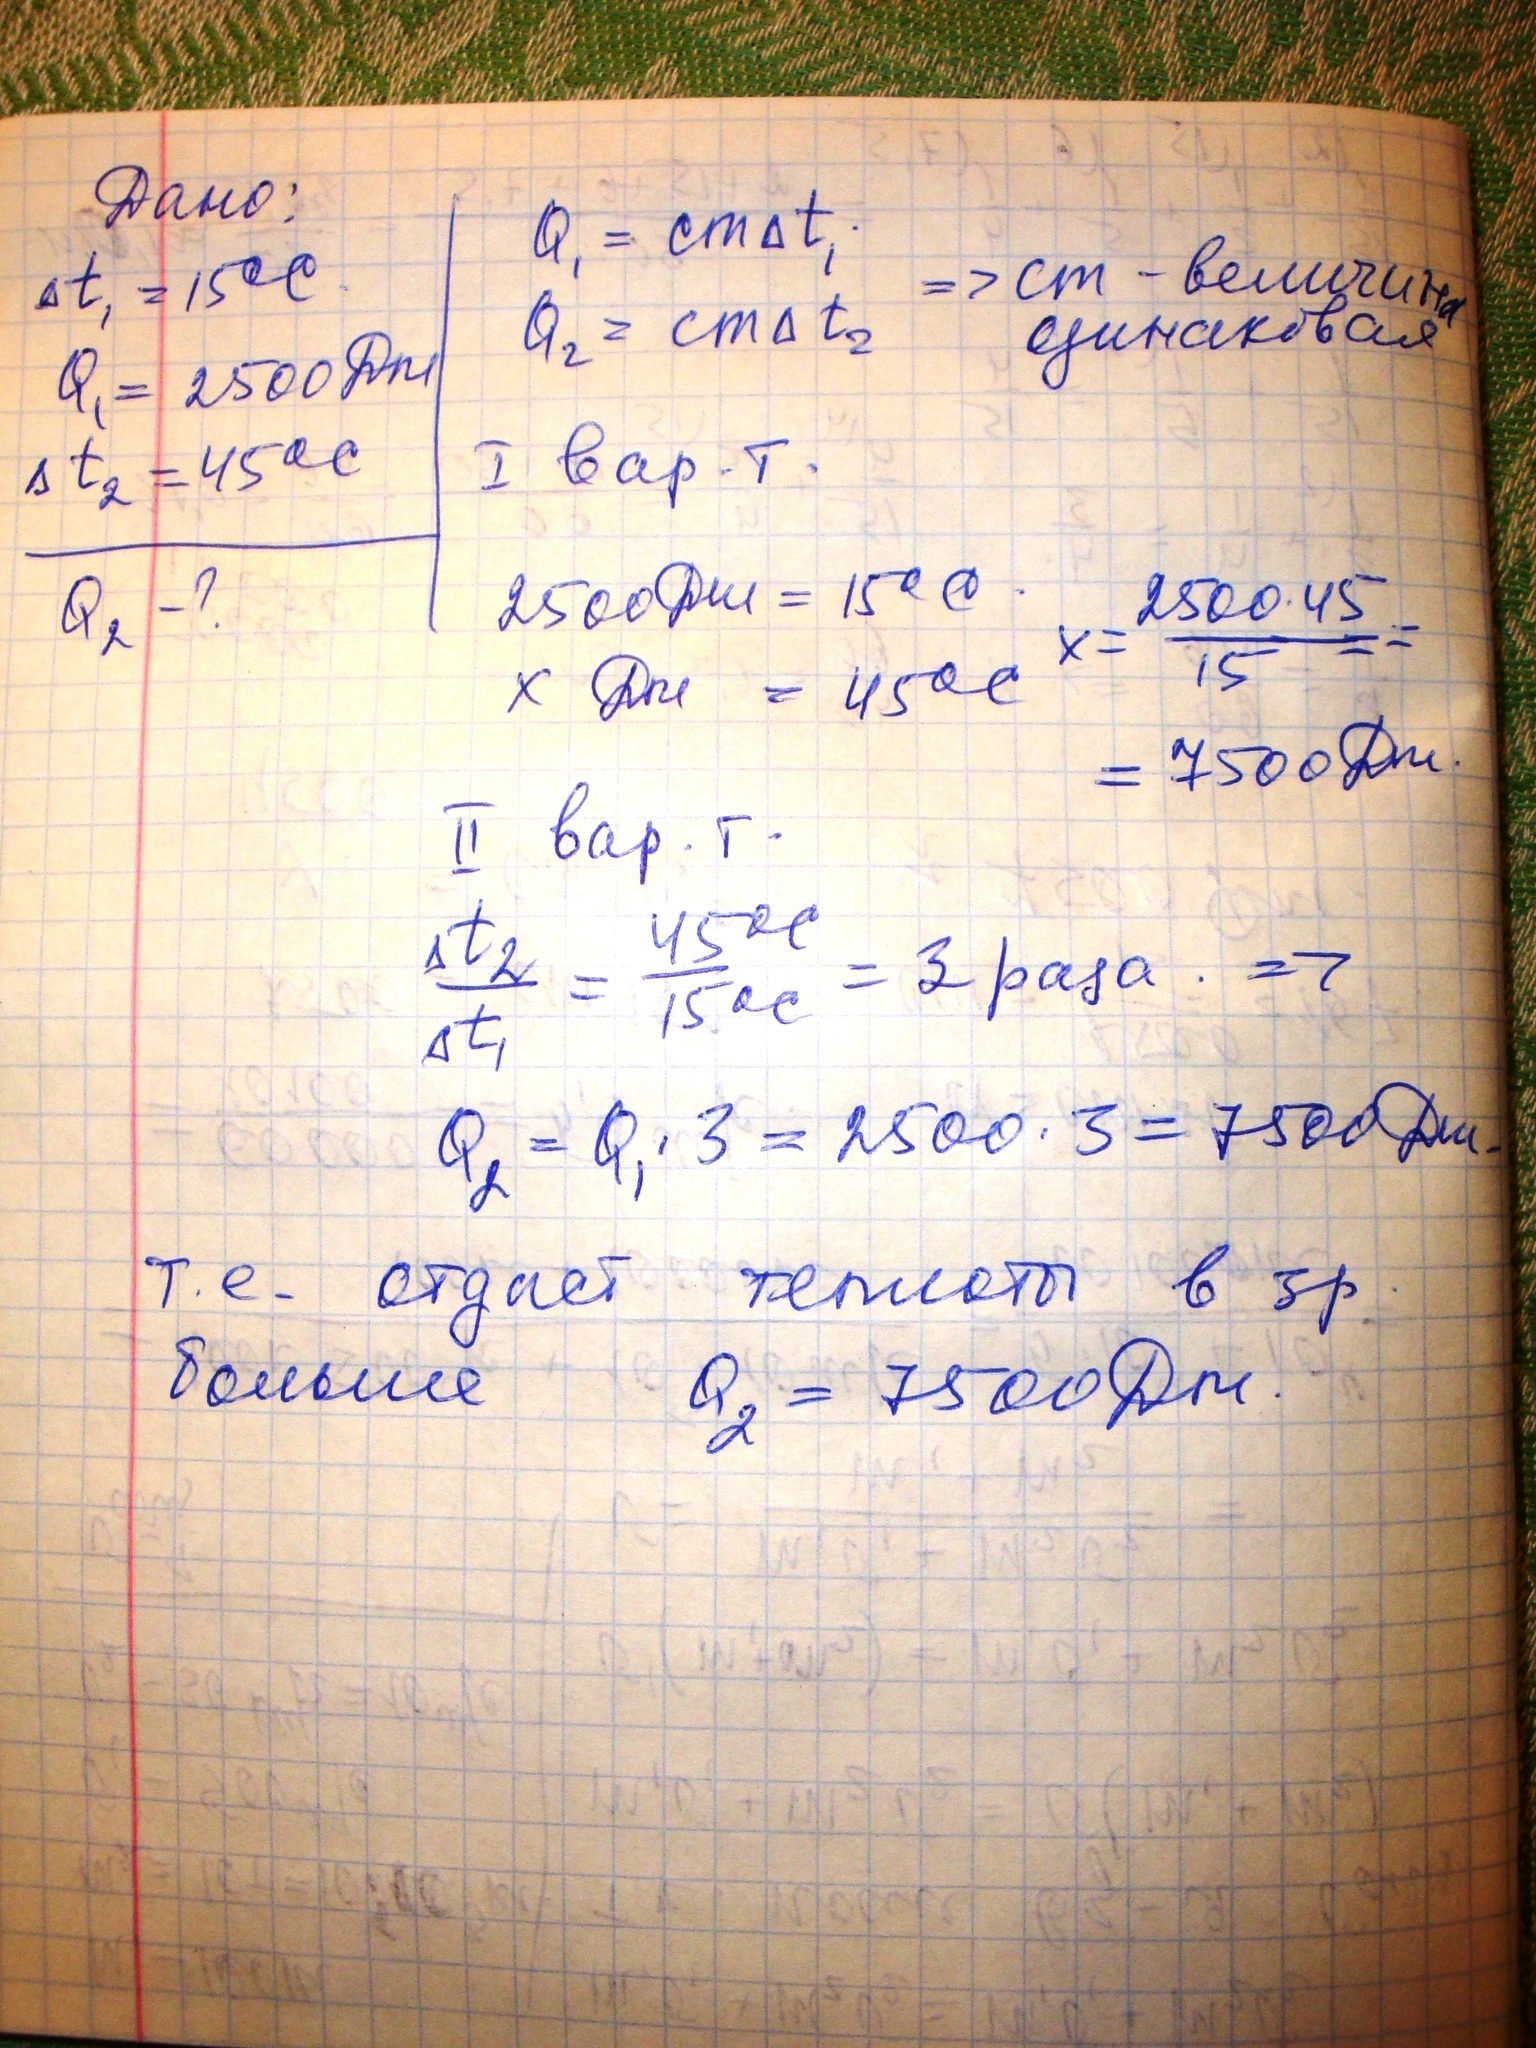 Дано:
Δt₁ = 15°C
Q₁ = 2500 Дж
Δt₂ = 45°C
Q₂ - ?
Q₁ = cmΔt₁
Q₂ = cmΔt₂
=> cm - величина
одинаковая
I вар.т.
2500 Дж = 15°C
x Дж = 45°C
x = 2500·45 / 15 =
= 7500 Дж.
II вар.т.
Δt₂ / Δt₁ = 45°C / 15°C = 3 раза. =>
Q₂ = Q₁·3 = 2500·3 = 7500 Дж.
т.е. отдаст теплоты в 3р.
больше Q₂ = 7500 Дж.